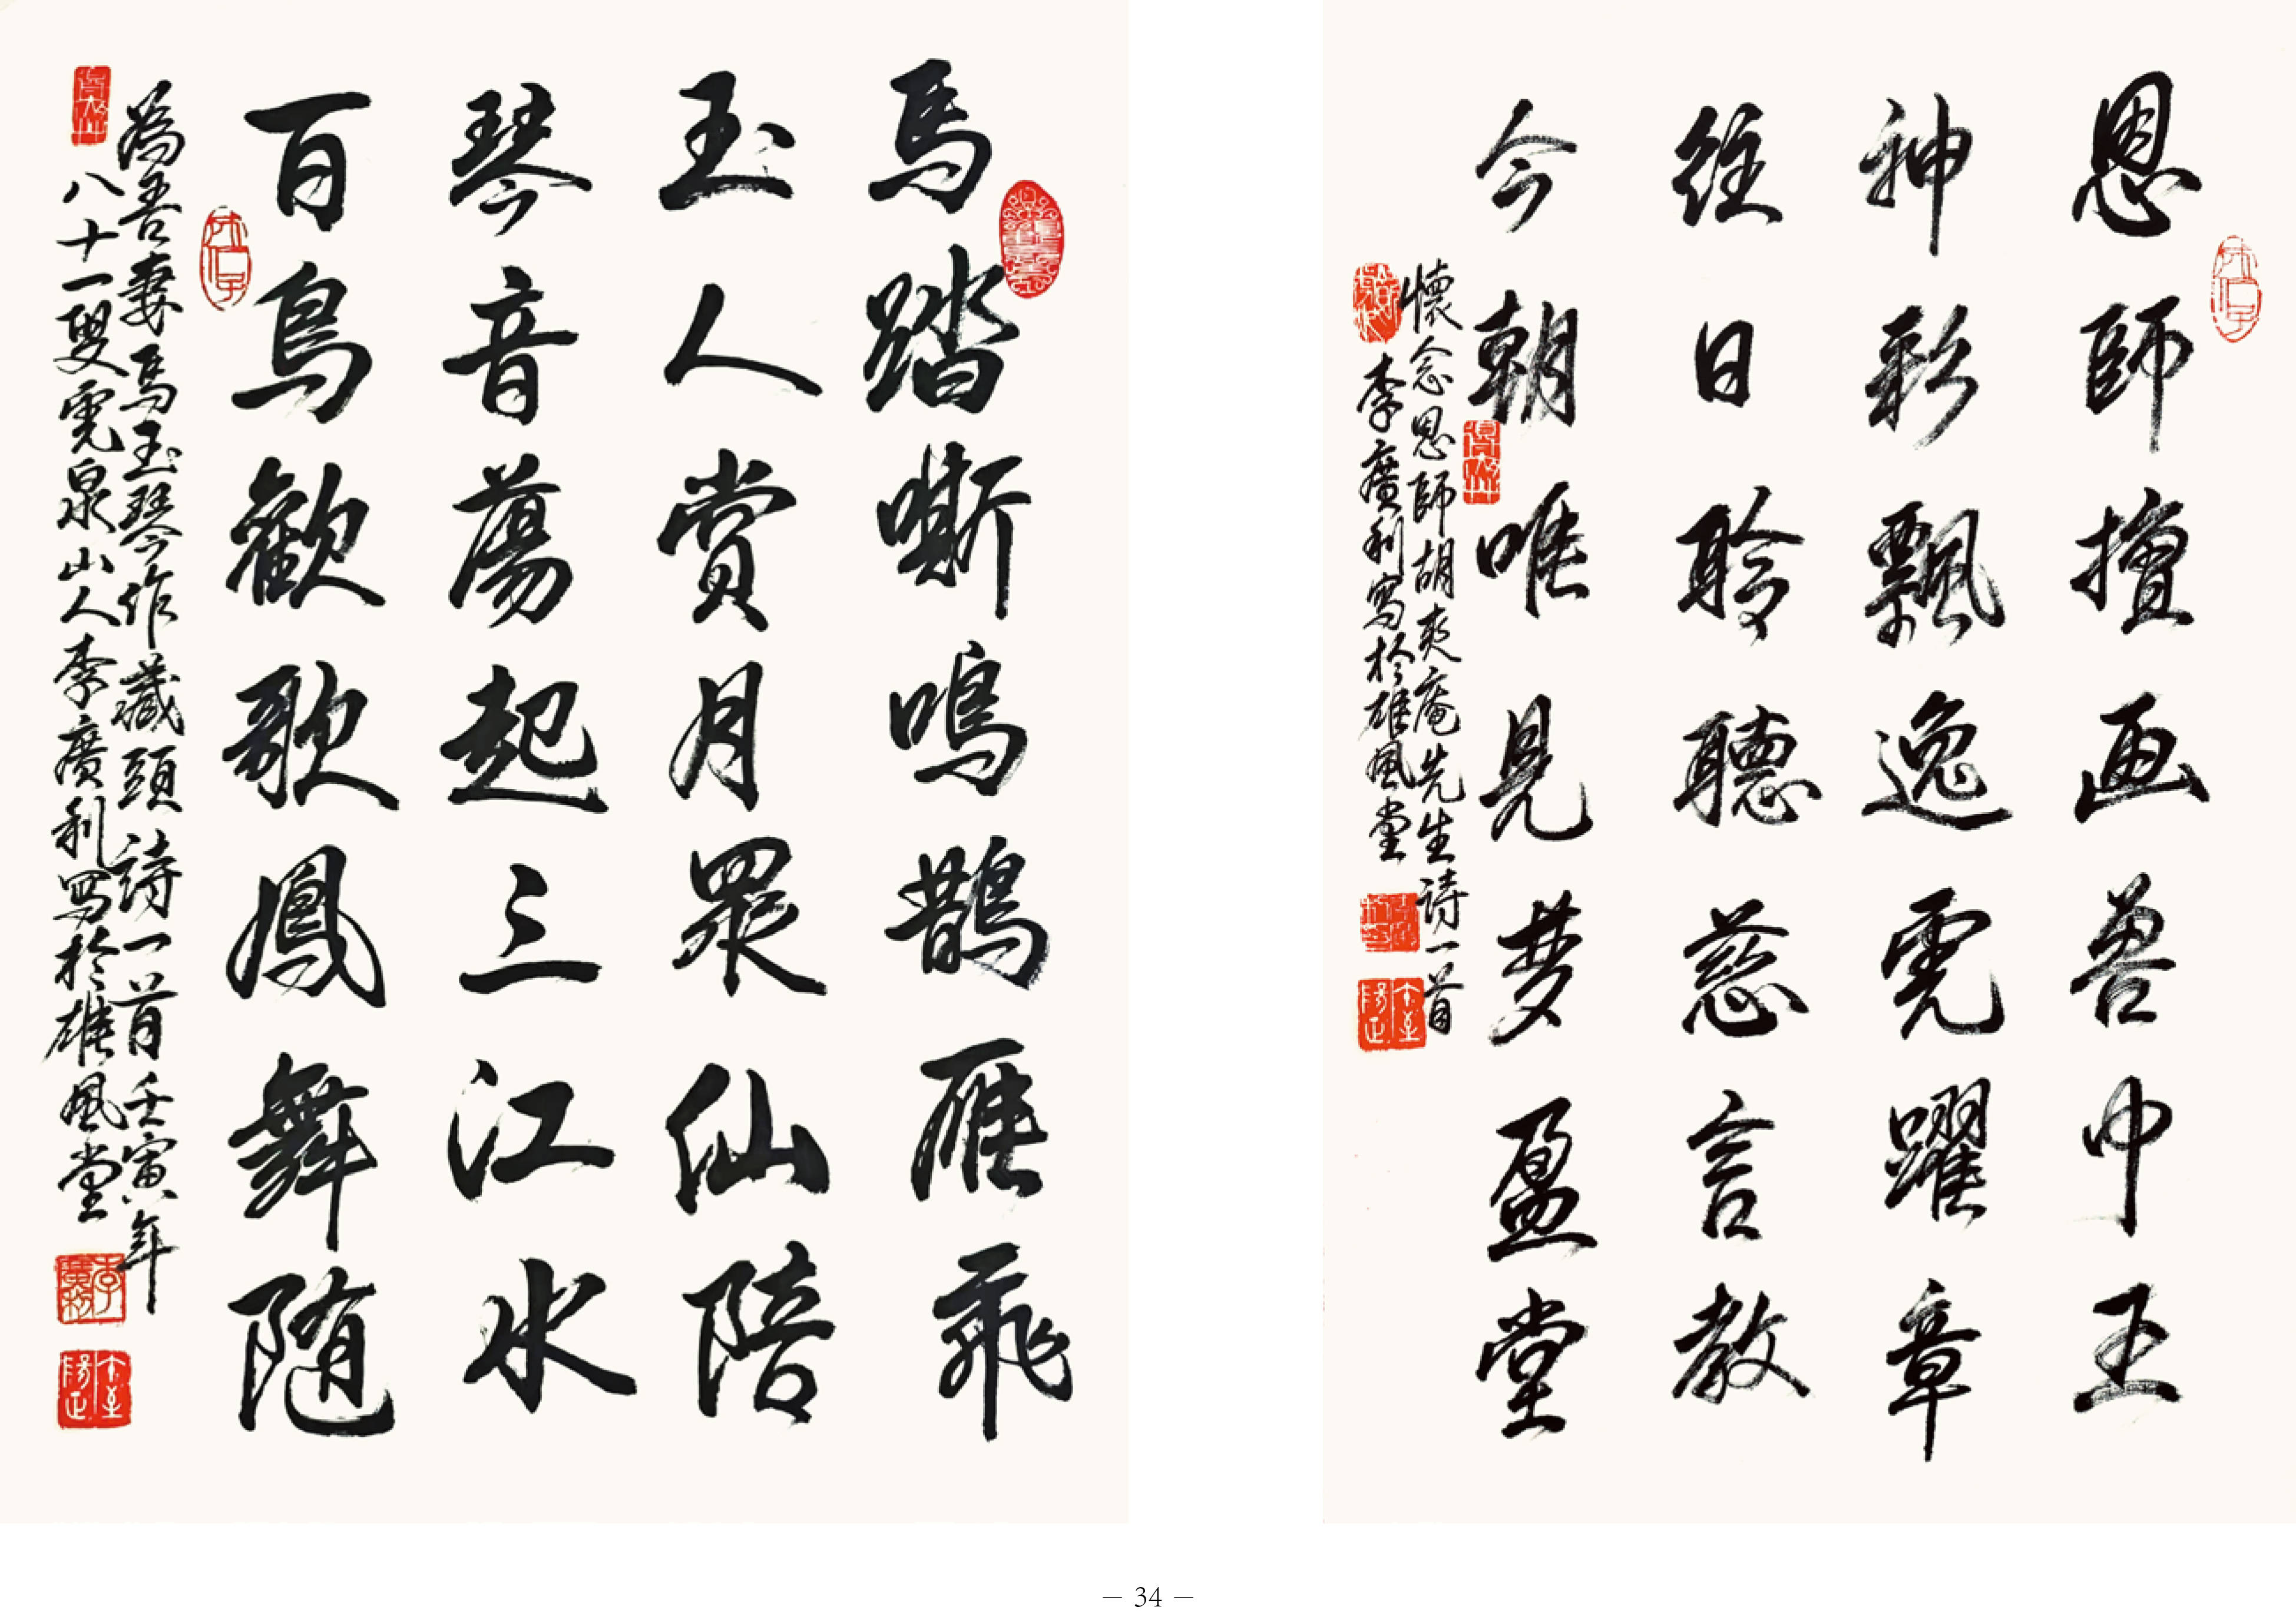 恩師擅画兽中王
神彩飄逸虎躍章
往日聆聽慈言教
今朝唯見梦盈堂
懷念恩師胡爽庵先生詩一首
李廣利寫於雄風堂
馬踏嘶鳴鵲雁飛
玉人賞月眾仙陪
琴音蕩起三江水
百鳥歡歌鳳舞随
為吾妻馬玉琴作藏頭詩一首壬寅年
八十一叟虎泉山人李廣利寫於雄風堂
李廣利
— 34 —